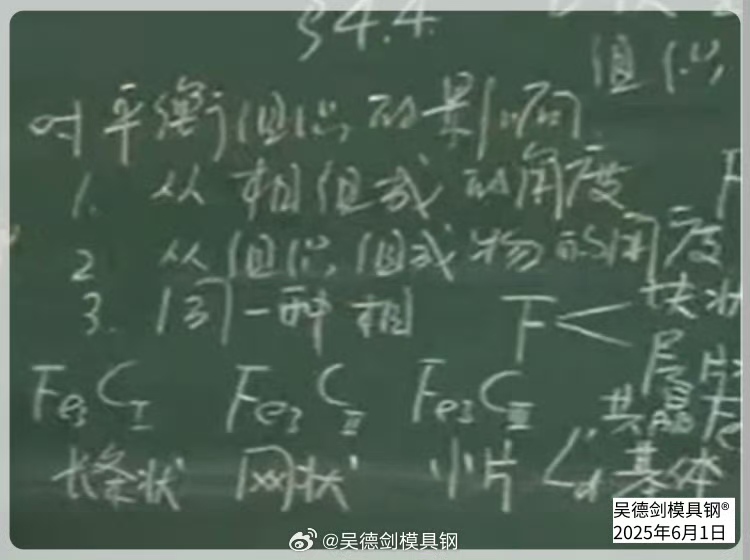 §4.4
组织
对平衡组织的影响
1. 从相组成的角度
2 从组织组成物的角度
3. 同一种相 F< 块状
层片
Fe₃CⅠ Fe₃CⅡ Fe₃CⅢ 共晶Fe
长条状 网状 小片 Ld'基体
吴德剑模具钢®
2025年6月1日
@吴德剑模具钢